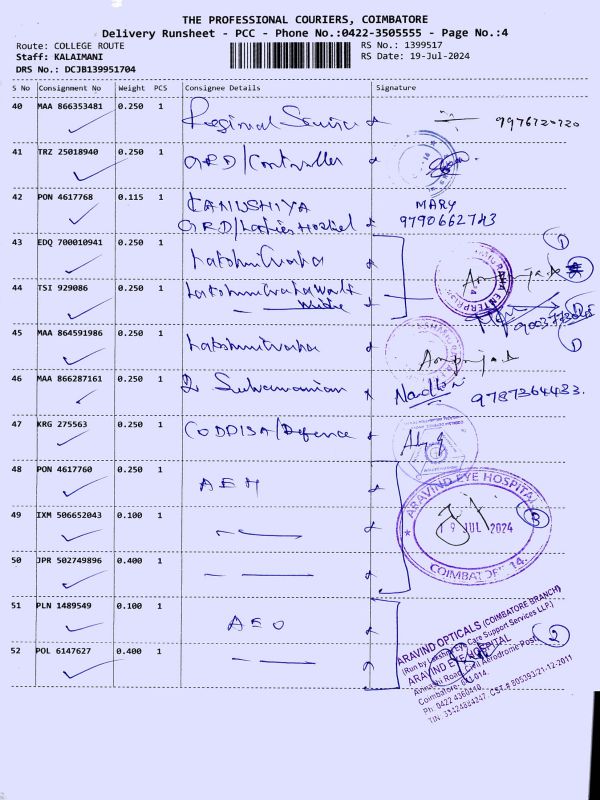 THE PROFESSIONAL COURIERS, COIMBATORE
Delivery Runsheet - PCC - Phone No.:0422-3505555 - Page No.:4
Route: COLLEGE ROUTE
RS No.: 1399517
Staff: KALAIMANI
RS Date: 19-Jul-2024
DRS No.: DCJB139951704
S No Consignment No Weight PCS Consignee Details Signature
40 MAA 866353481 0.250 1 Regional Service
41 TRZ 25018940 0.250 1 GRD/Controller
42 PON 4617768 0.115 1 KANUSHIYA MARY
GRD/Ladies Hostel 9790662743
43 EDQ 700010941 0.250 1
44 TSI 929086 0.250 1
45 MAA 864591986 0.250 1
46 MAA 866287161 0.250 1 Subramanian 9787364483.
47 KRG 275563 0.250 1 CODDISA/Defence
48 PON 4617760 0.250 1 AEH
ARAVIND EYE HOSPITAL
49 IXM 506652043 0.100 1
19 JUL 2024
3
50 JPR 502749896 0.400 1
COIMBATORE 14.
51 PLN 1489549 0.100 1 AEO
52 POL 6147627 0.400 1
ARAVIND OPTICALS (COIMBATORE BRANCH)
(Run by Lakshmi Eye Care Support Services LLP.)
ARAVIND EYE HOSPITAL
Avinashi Road, Civil Aerodrome Post,
Coimbatore - 641-014.
Ph: 0422 4360410
2